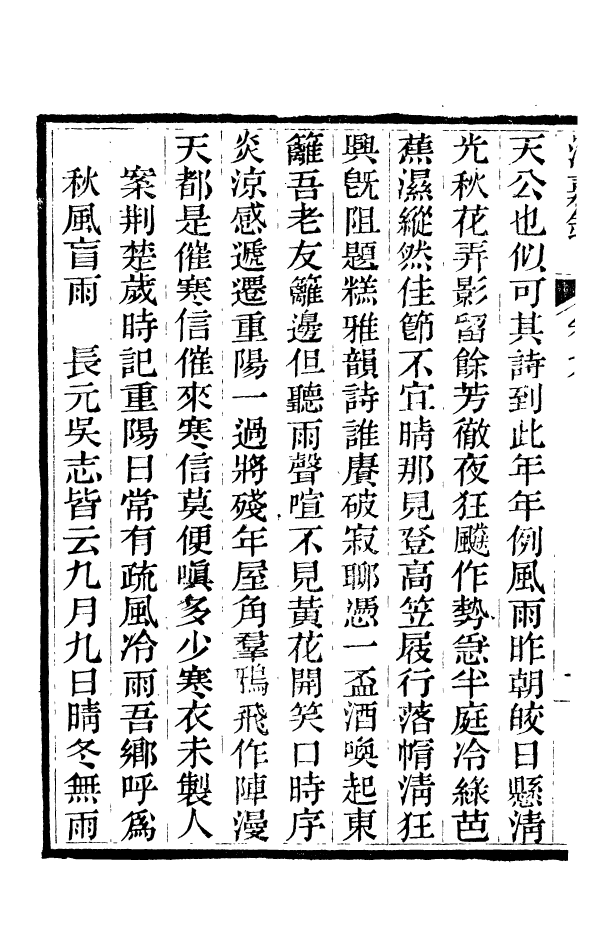 天公也似可其詩到此年年例風雨昨朝皎日懸淸
光秋花弄影留餘芳徹夜狂飇作勢急半庭冷綠芭
蕉濕縱然佳節不宜晴那見登高笠屐行落帽淸狂
興旣阻題糕雅韻詩誰賡破寂聊憑一盃酒喚起東
籬吾老友籬邊但聽雨聲喧不見黃花開笑口時序
炎涼感遞遷重陽一過將殘年屋角羣鴉飛作陣漫
天都是催寒信催來寒信莫便嗔多少寒衣未製人
案荆楚歲時記重陽日常有疏風冷雨吾鄉呼爲
秋風盲雨　長元吳志皆云九月九日晴冬無雨